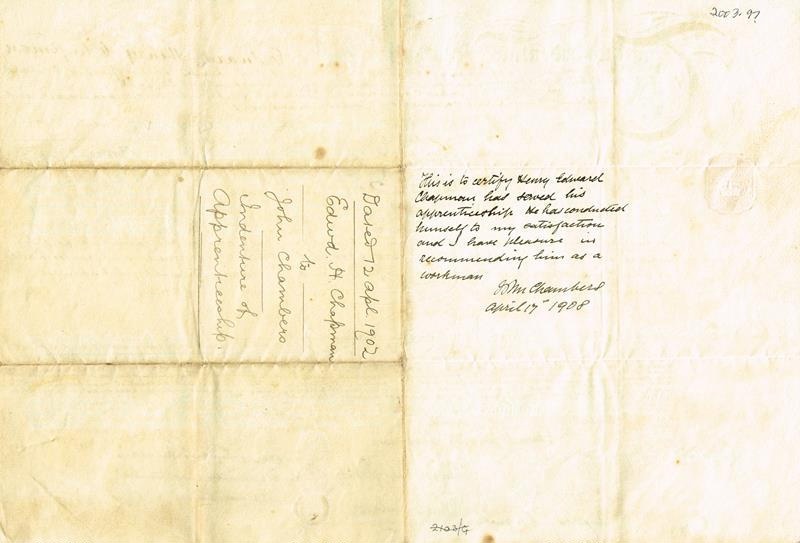 2003.97
Dated 12 apl. 1902
Edwd. H. Chapman
to
John Chambers
Indenture of
Apprenticeship.
This is to certify Henry Edward
Chapman has served his
apprenticeship He has conducted
himself to my satisfaction
and I have pleasure in
recommending him as a
workman
John Chambers
April 17" 1908